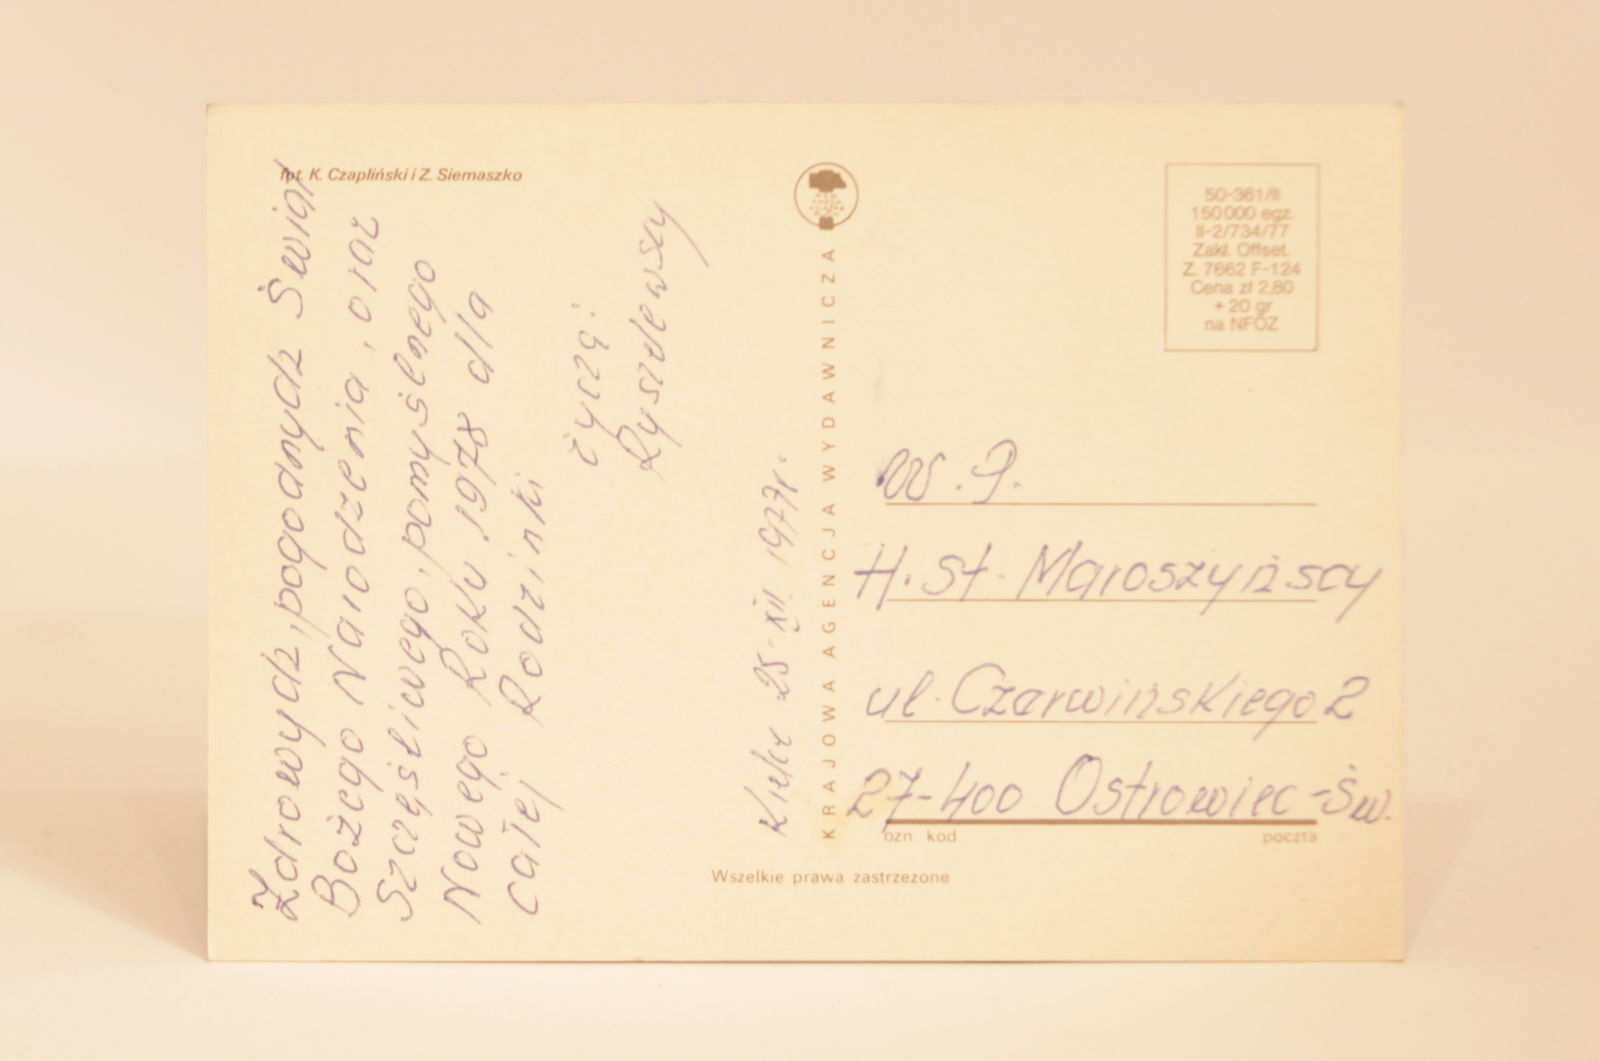 fot. K. Czapliński i Z. Siemaszko
Zdrowych, pogodnych Świąt
Bożego Narodzenia, oraz
Szczęśliwego, pomyślnego
Nowego Roku 1978 dla
całej Rodzinki
życzą:
Ryszelewscy
Kielce 25-XII 1977r.
KRAJOWA AGENCJA WYDAWNICZA
RSW
PRASA
KSIĄŻKA
RUCH
50-361/II
150000 egz.
II-2/734/77
Zakł. Offset.
Z. 7662 F-124
Cena zł 2,80
+ 20 gr
na NFOZ
W.P.
H. St. Maroszyńscy
ul. Czarwińskiego 2
27-400 Ostrowiec-Św.
ozn. kod. poczta
Wszelkie prawa zastrzeżone